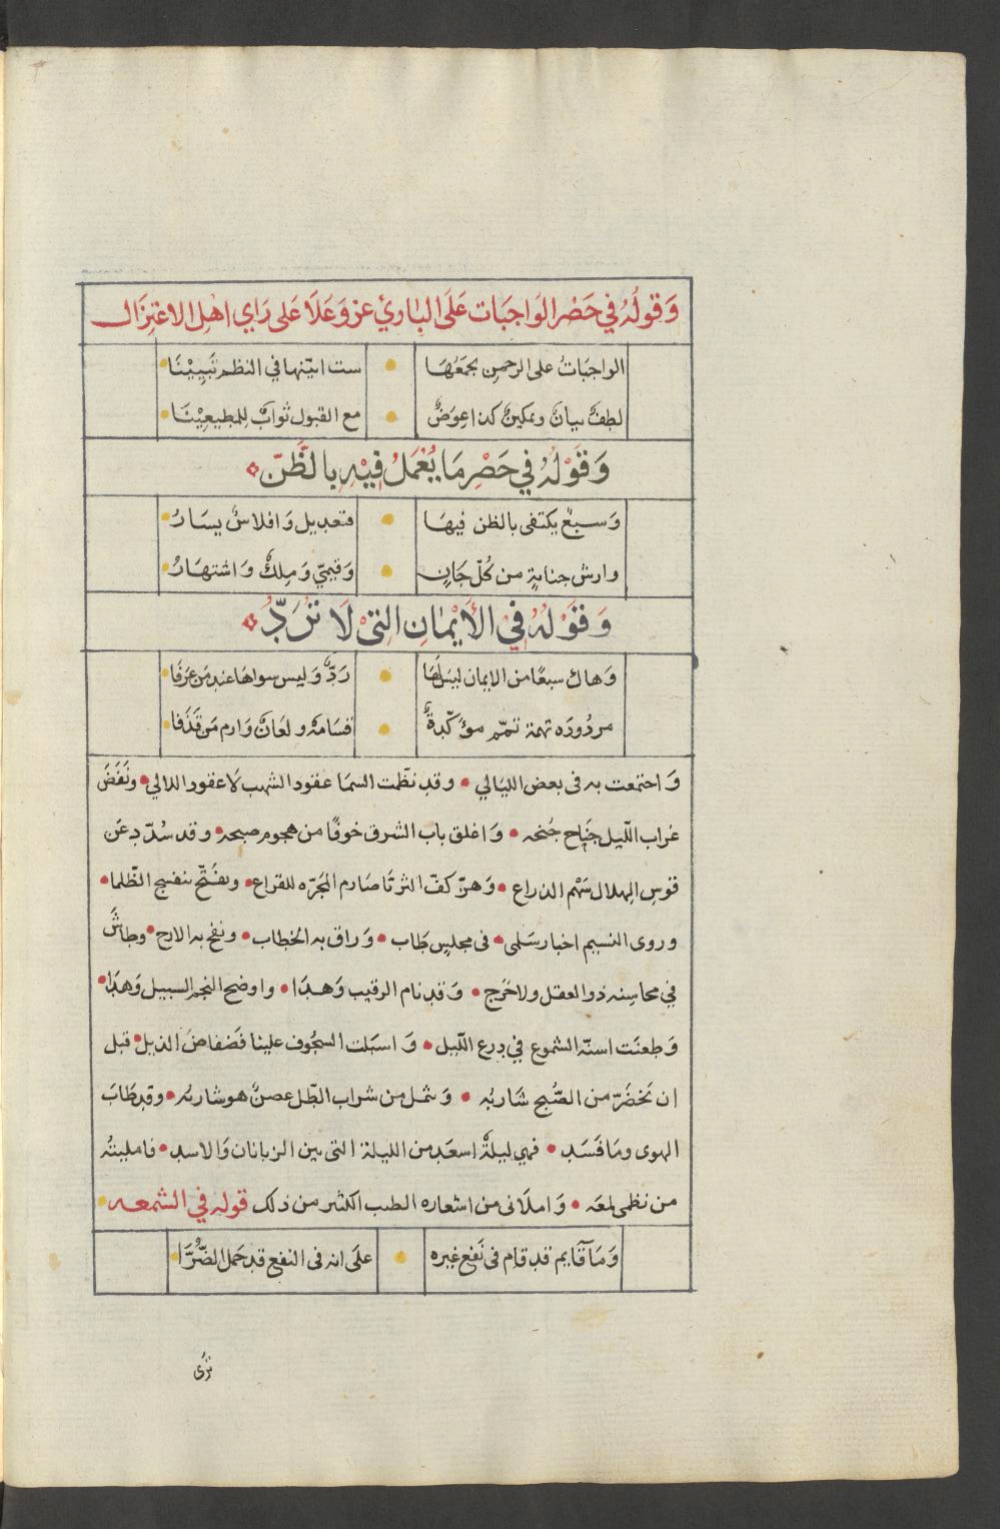 وَقولُهُ في حَصْرِ الوَاجبَات عَلَى البٰاريْ عز وَعَلَا عَلى رَاي اهْلِ الاعْتِزَال
الواجبَاتُ على الرحمنِ يجمَعُهَا • ست ابيّنها في النظم تَبْيِيْنَا
لطفٌ بيانٌ وتمكينٌ كذا عِوَضٌ • مع القبول ثوابٌ لِلمطيعِيْنَا
وَقَوْلهُ في حَصْرِ مَا يُعْمَلُ فيْهِ بِالظَّنّ
وَسبعٌ يكتفى بالظن فيهَا • فتعديل وَافلاسٌ يسَارُ
وارش جنايةٍ من كُلّ جَانٍ • وَقيمتي وَملِكٌ وَاشتهَارُ
وَقَوْلهُ فيْ الأَيْمٰانِ التيْ لَا تُرَدّ
وَهاك سبعًا من الايمان ليسَ لَهَا • رَدٌّ وَليس سواهَا عند مَن عَرَفَا
مردُودَه تهمة تمّم مؤكّدةٌ • قسَامهٌ ولعَانٌ وَارم مَن قَذَفا
وَاجتمعت به فى بعض الليَالي • وقد نظّمت السمَا عقود الشهب لَا عقود اللالي • ونَفَضَ
غراب اللّيل جنَاح جُنحه • وَاغلق باب الشرق خوفًا من هجوم صبحه • وقد سُدّد عَن
قوسِ الهلال سَهْم الذراع • وَهزّ كفّ الثريَّا صَارم المجَرّه للقراع • وتفَتّح بنفسج الظّلما •
وروى النسيم اخبار سَلمى • فى مجلسٍ طَاب • وَراق به الخطاب • ونفح به الارج • وطاشَ
في محاسِنه ذو العقل ولا حَرج • وَقد نام الرقيب وَهدَا • واوضح النجم السبيل وَهدَا •
وَطعنَت اسنّة الشموع في درع اللّيل • وَاسبَلت السجُوف علينا فَضفاضَ الذيل • قبل
ان يخضَرّ من الصُّبح شَاربُه • وَثمل من شراب الطّل غصنٌ هو شاربُه • وقد طَابَ
الهوى ومَا فَسَد • فهي ليلةٌ اسعَد من الليلة التى بين الزبانان وَالاسد • فامليتهُ
من نظمى لمعَه • وَاملَانى من اشعاره الطيب الكثير من ذلك قوله في الشمعه •
وَمَا قَايم قد قام فى نَفع غيره • علَى انه فى النفع قد حَمل الضُّرَّا
تَرى